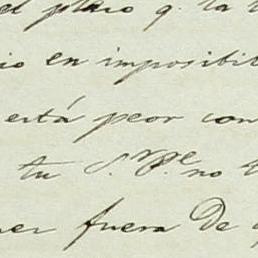 el plazo q. la
io en imposibi
está peor con
tu S.r P.e no
er fuera De